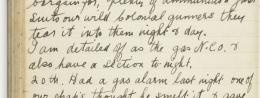 bargain for, plenty of ammunition & gas
suits our wild Colonial gunners they
tear it into them night & day.
I am detailed off as the gas N.C.O. &
also have a section to night.
20th. Had a gas alarm last night one of
our chaps thought he smelt it & gave